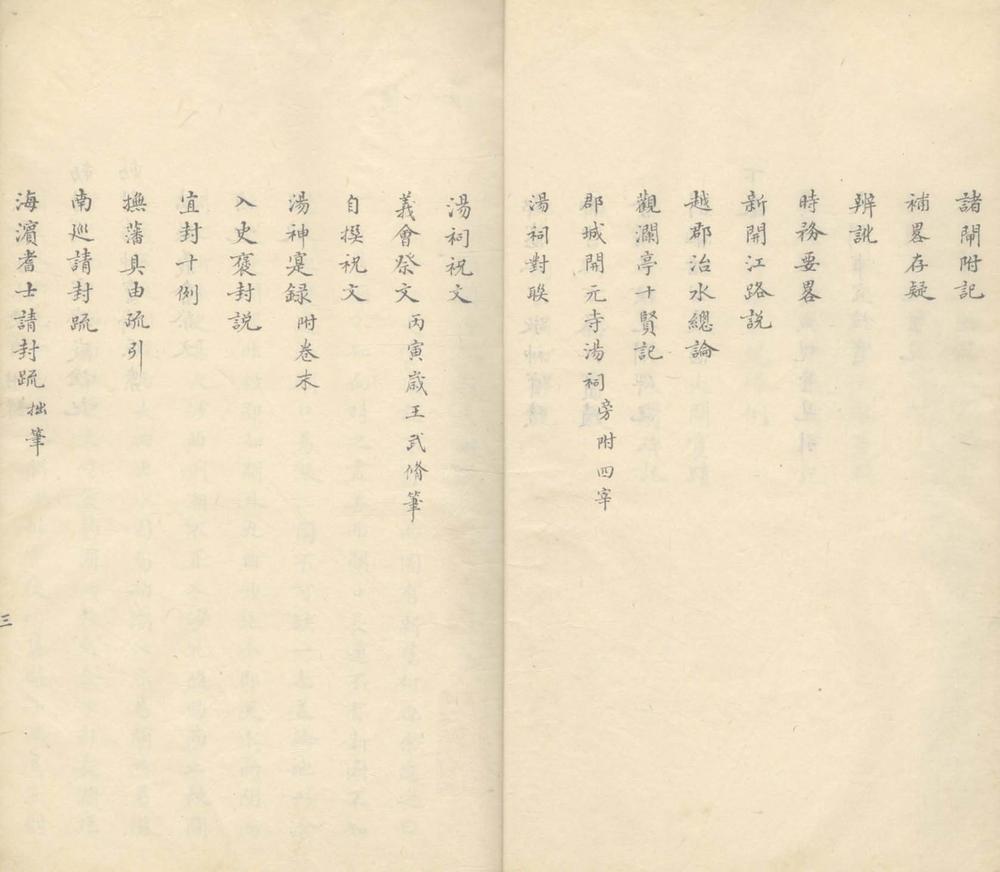 諸閘附記
補畧存疑
辨訛
時務要畧
新開江路説
越郡治水總論
觀瀾亭十賢記
郡城開元寺湯祠旁附四宰
湯祠對聯
湯祠祝文
義會祭文丙寅歳王武脩筆
自撰祝文
湯神寔録附卷末
入史褒封説
宜封十例
撫藩具由疏引
南巡請封疏
海濵耆士請封疏拙筆
三